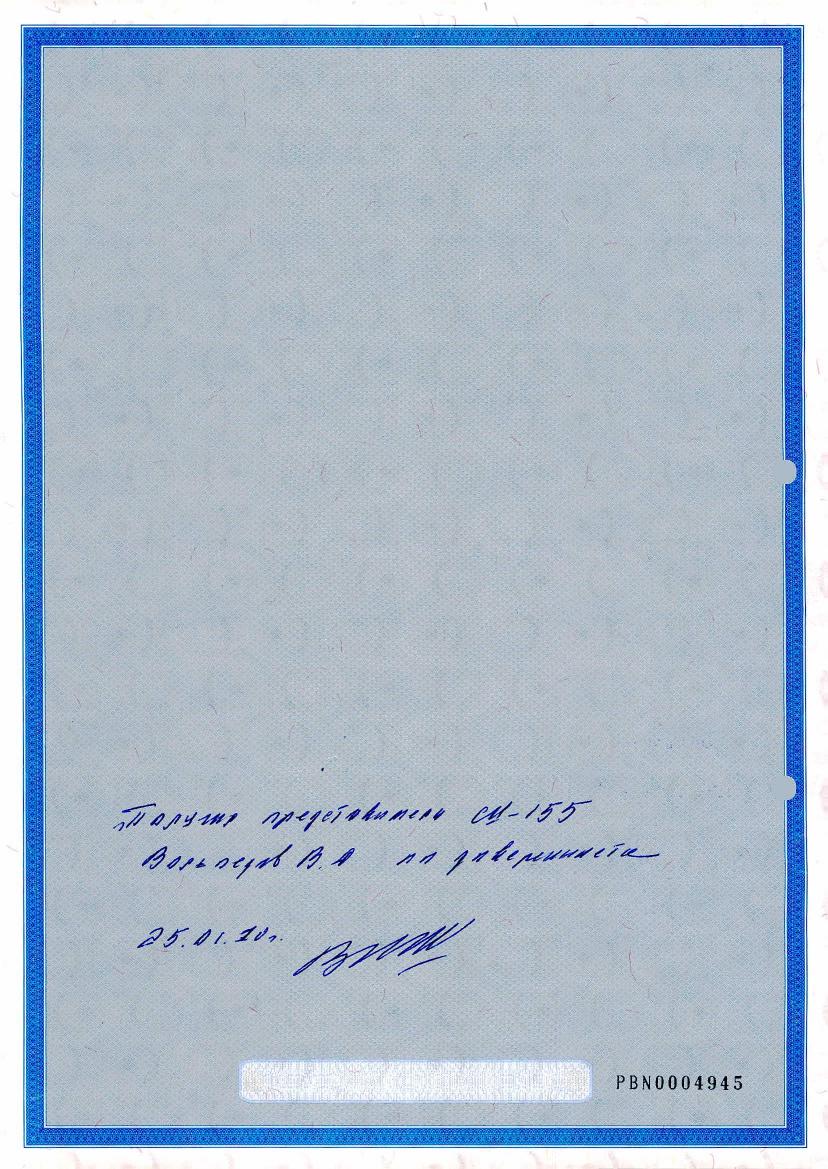 Получил представитель СУ-155
В.А по доверенности
25.01.20г.
PBN0004945